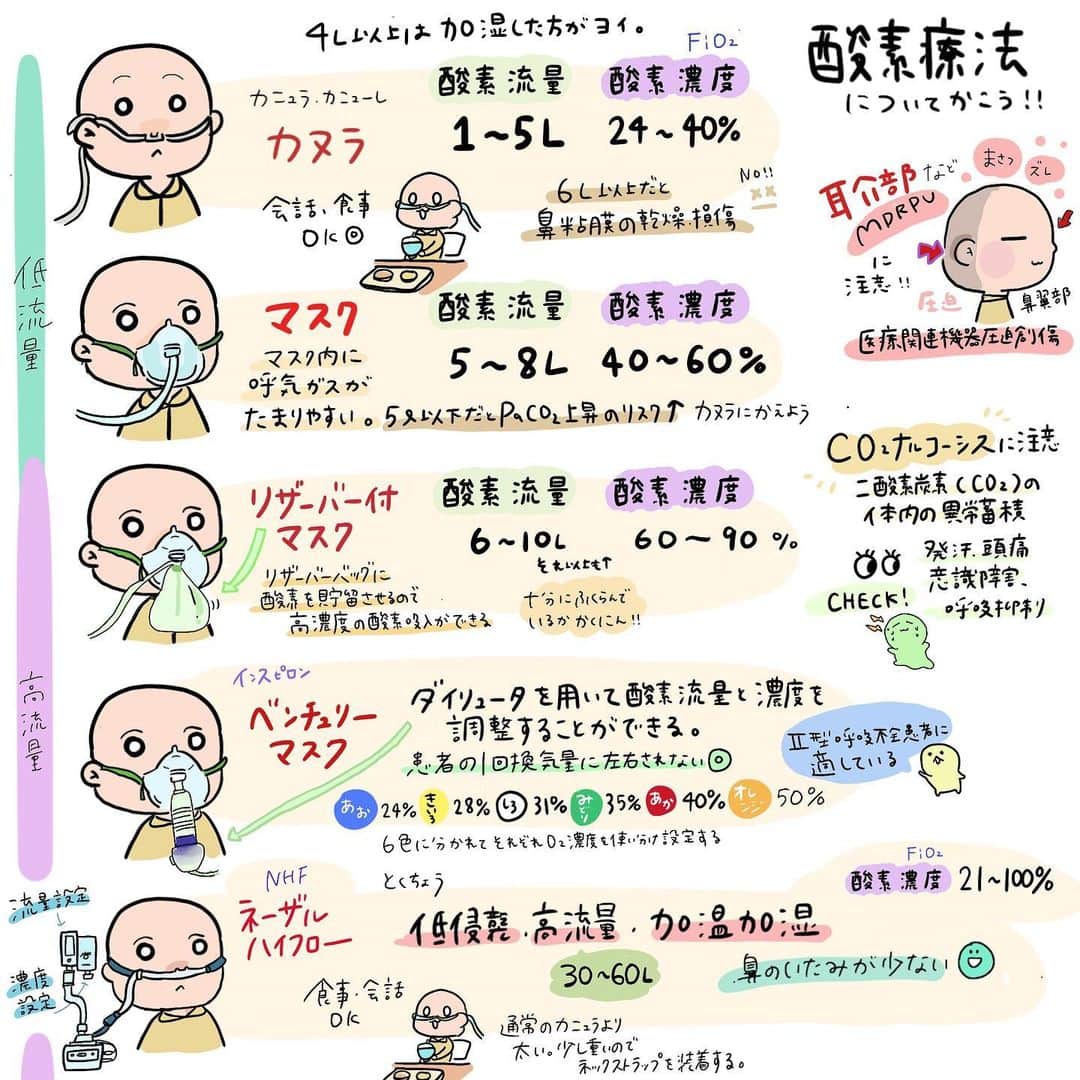 4L以上は加湿した方がヨイ。
酸素療法
についてかこう!!
低流量
高流量
カニュラ・カニューレ
カヌラ
酸素流量
FiO₂
酸素濃度
1~5L
24~40%
会話、食事
OK◎
6L以上だと
鼻粘膜の乾燥・損傷
NO!!
耳介部など
MDRPU
に
注意!!
まさつ
ズレ
圧迫
鼻翼部
医療関連機器圧迫創傷
マスク
酸素流量
酸素濃度
5~8L
40~60%
マスク内に
呼気ガスが
たまりやすい。5L以下だとPaCO₂上昇のリスク↑ カヌラにかえよう
CO₂ナルコーシスに注意
二酸素炭素(CO₂)の
体内の異常蓄積
発汗、頭痛
意識障害、
呼吸抑制
CHECK!
リザーバー付
マスク
酸素流量
酸素濃度
6~10L
それ以上も↑
60~90%
リザーバーバッグに
酸素を貯留させるので
高濃度の酸素吸入ができる
十分にふくらんで
いるかかくにん!!
インスピロン
ベンチュリー
マスク
ダイリュータを用いて酸素流量と濃度を
調整することができる。
患者の1回換気量に左右されない◎
Ⅱ型呼吸不全患者に
適している
あお 24% きいろ 28% しろ 31% みどり 35% あか 40% オレンジ 50%
6色に分かれてそれぞれO₂濃度を使い分け設定する
NHF
ネーザル
ハイフロー
とくちょう
FiO₂
酸素濃度 21~100%
低侵襲・高流量・加温加湿
30~60L
鼻のいたみが少ない
流量設定
濃度
設定
食事・会話
OK
通常のカニュラより
太い。少し重いので
ネックストラップを装着する。